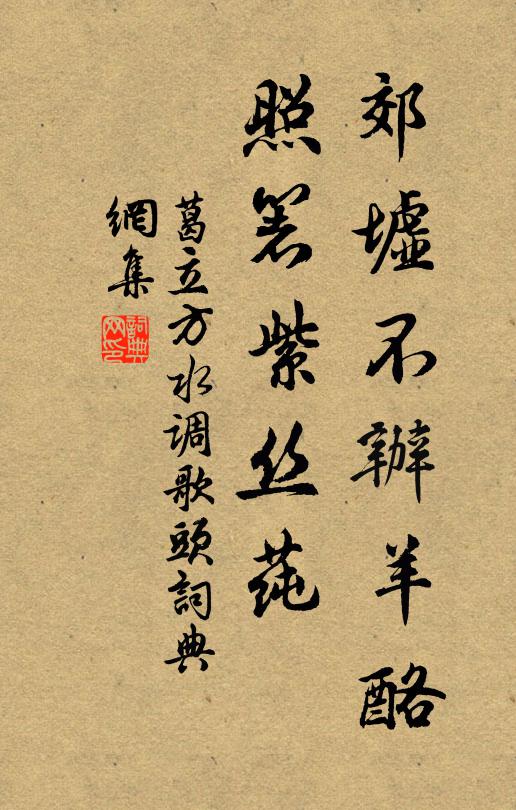 郊墟不辦羊酪
照箸紫丝莼
葛立方水调歌頭詞典
網集
詞典网印